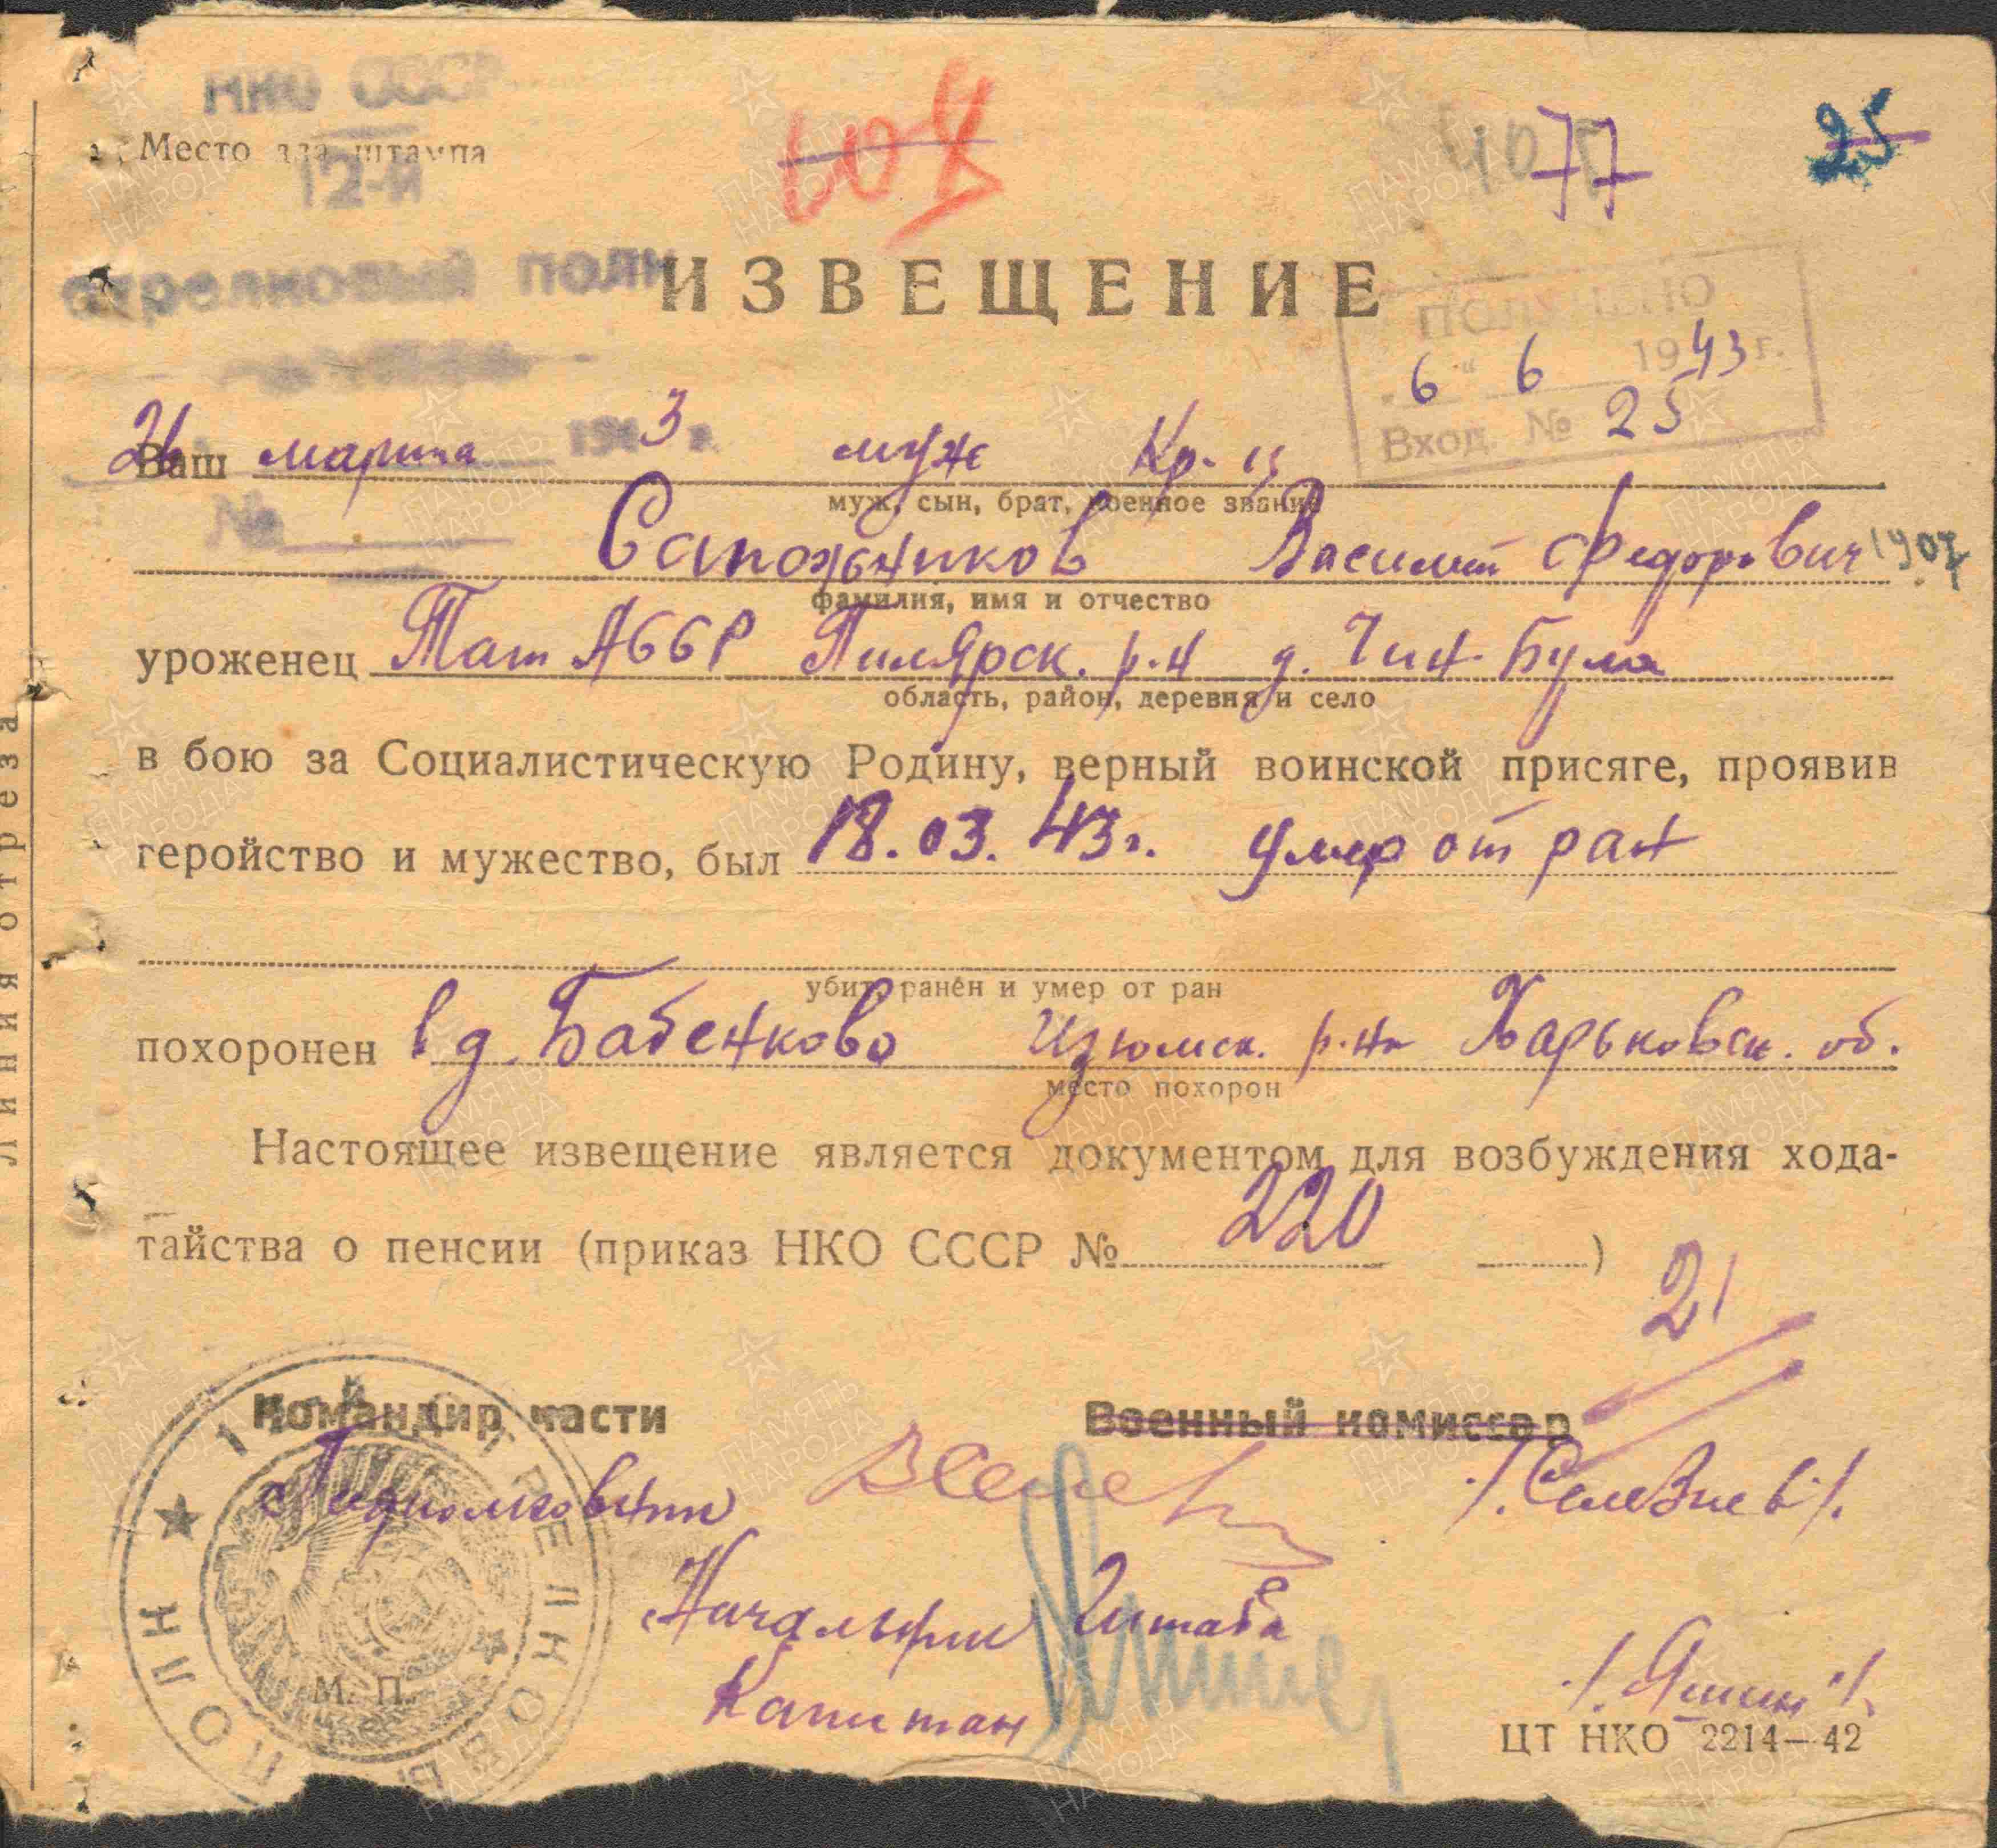 НКО СССР
Место для штампа
12-й
608
77
25
стрелковый полк
ИЗВЕЩЕНИЕ
ПОЛУЧЕНО
"6" 6 1943 г.
Вход. № 25
26 марта 1943 г.
№
Ваш муж Кр-ц
муж, сын, брат, военное звание
Сапожников Василий Федорович 1907
фамилия, имя и отчество
уроженец Тат АССР Билярск. р-н д. Чит. Була
область, район, деревня и село
в бою за Социалистическую Родину, верный воинской присяге, проявив
геройство и мужество, был 18.03.43г. умер от ран
убит, ранен и умер от ран
похоронен в д. Бабенково Изюмск. р-на Харьковск. об.
место похорон
Настоящее извещение является документом для возбуждения хода-
тайства о пенсии (приказ НКО СССР № 220 )
21
Командир части Военный комиссар
Подполковник /Селезнев/.
Начальник Штаба
Капитан /Яшин/
М. П.
СТРЕЛКОВЫЙ ПОЛК
ЦТ НКО 2214—42
Линия отреза
ПАМЯТЬ НАРОДА